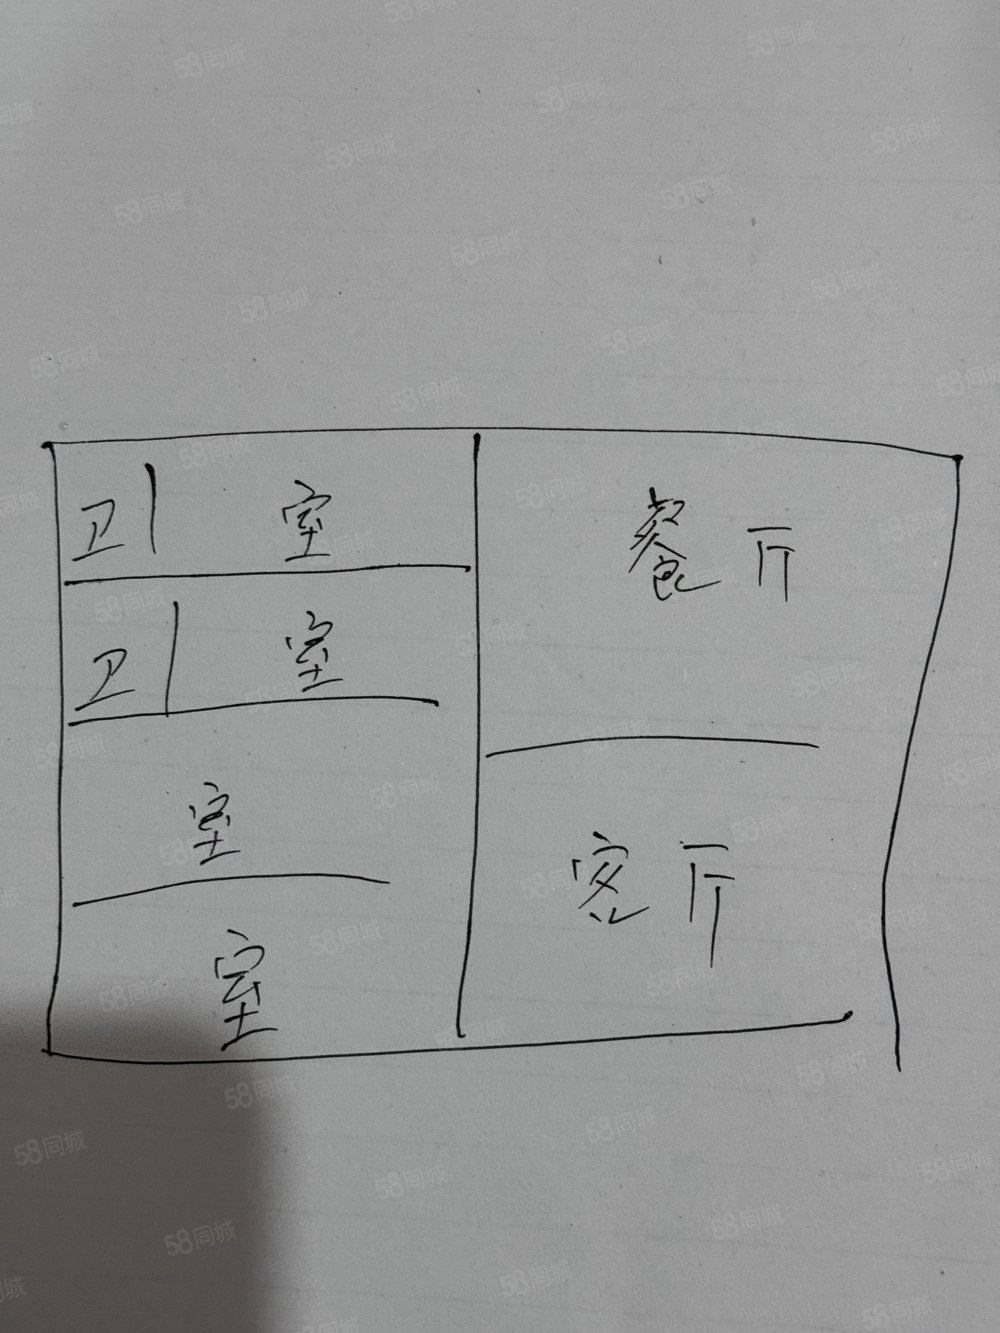 卫 室
卫 室
室
室
餐厅
客厅
58同城